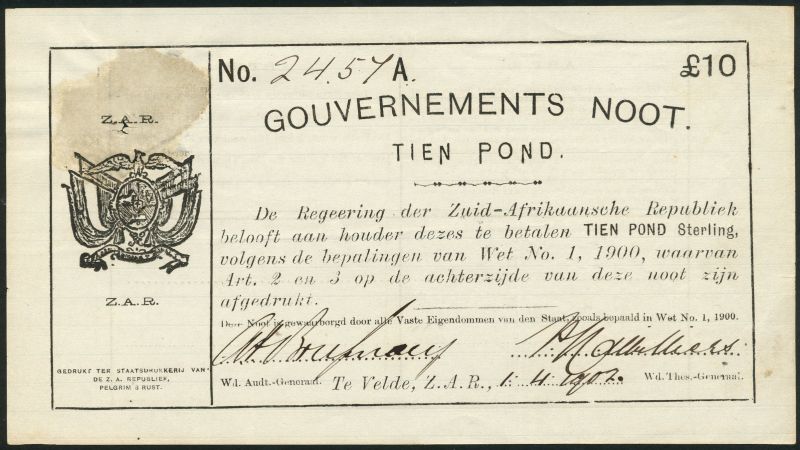 No. 2457 A.
£10
GOUVERNEMENTS NOOT.
TIEN POND.
De Regeering der Zuid-Afrikaansche Republiek
belooft aan houder dezes te betalen TIEN POND Sterling,
volgens de bepalingen van Wet No. 1, 1900, waarvan
Art. 2 en 3 op de achterzijde van deze noot zijn
afgedrukt.
Deze Noot is gewaarborgd door alle Vaste Eigendommen van den Staat, zooals bepaald in Wet No. 1, 1900.
Wd. Audt.-Generaal. Te Velde, Z.A.R., 1. 4. 1902. Wd. Thes.-Generaal.
Z.A.R.
Z.A.R.
GEDRUKT TER STAATSDRUKKERIJ VAN
DE Z. A. REPUBLIEK,
PELGRIM S RUST.